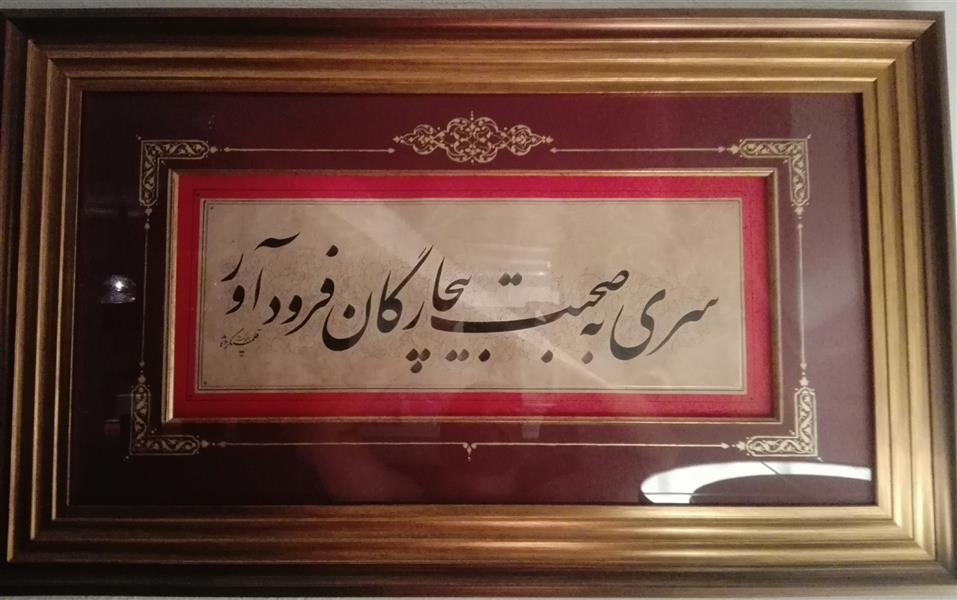 سری به صحبت بیچارگان فرود آور